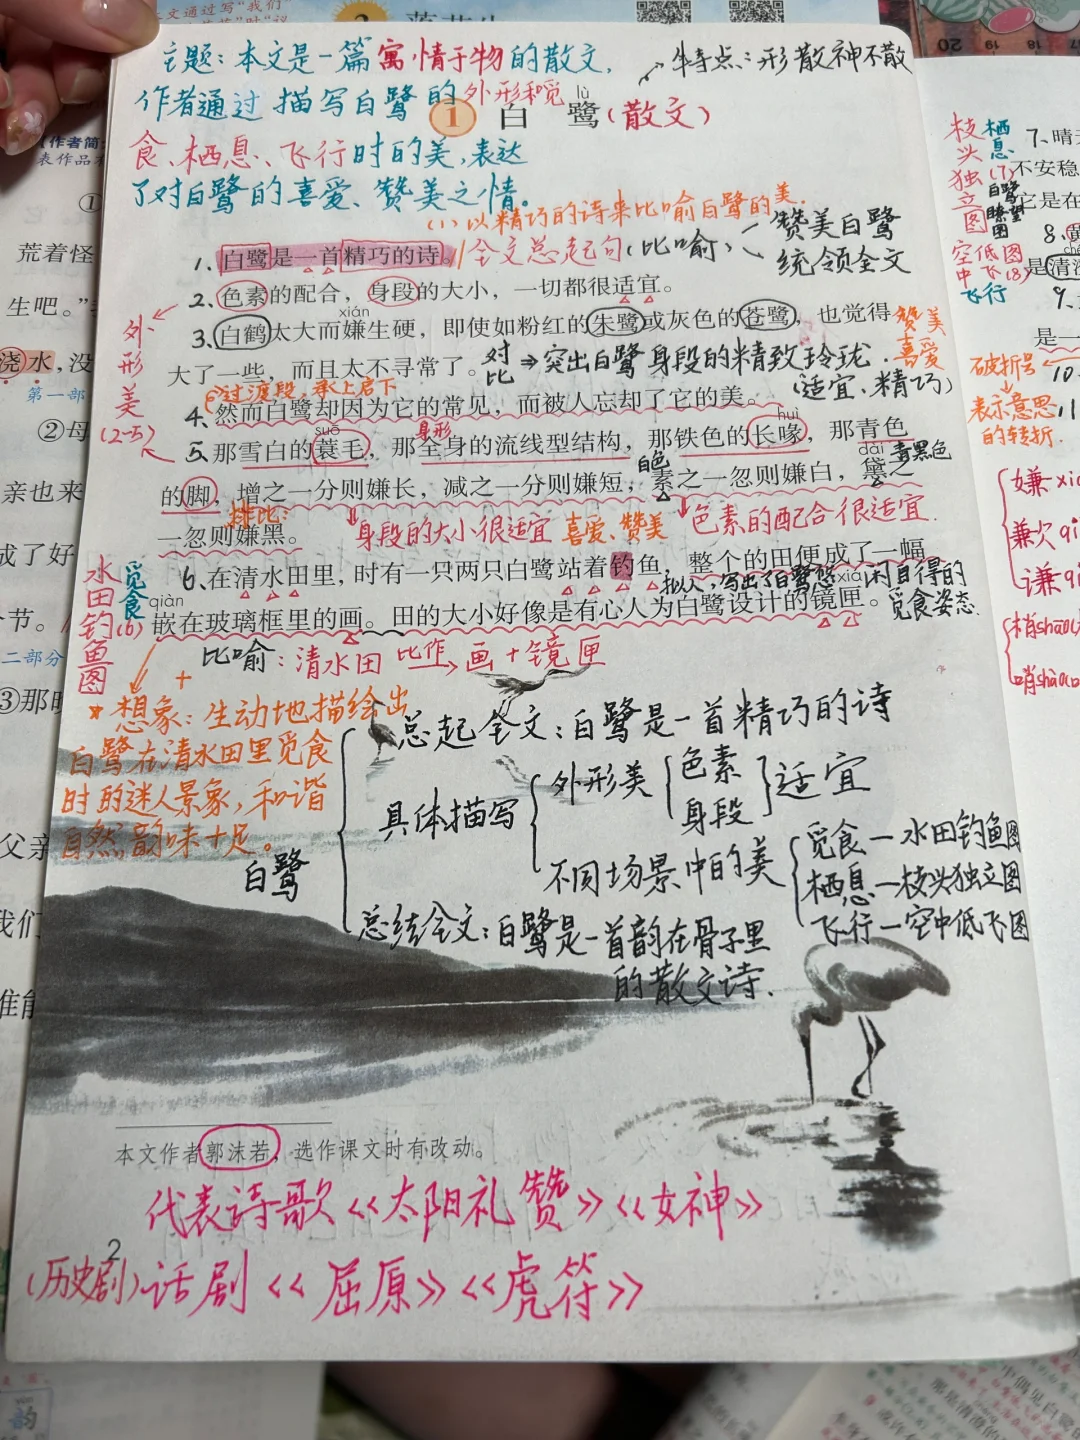 主题：本文是一篇寓情于物的散文，
特点：形散神不散
作者通过描写白鹭的外形和觅
lù
1 白 鹭（散文）
食、栖息、飞行时的美，表达
了对白鹭的喜爱、赞美之情。
(1) 以精巧的诗来比喻白鹭的美.
1、白鹭是一首精巧的诗。 全文总起句（比喻） 赞美白鹭
统领全文
2、色素的配合，身段的大小，一切都很适宜。
xián
3、白鹤太大而嫌生硬，即使如粉红的朱鹭或灰色的苍鹭，也觉得
赞美
喜爱
大了一些，而且太不寻常了。 对比 ⇒ 突出白鹭身段的精致玲珑.
（适宜、精巧）
过渡段，承上启下
4、然而白鹭却因为它的常见，而被人忘却了它的美。
外形美
(2-5)
suō
身形
huì
5、那雪白的蓑毛，那全身的流线型结构，那铁色的长喙，那青色
白色
dài
青黑色
的脚，增之一分则嫌长，减之一分则嫌短，素之一忽则嫌白，黛之
排比：
一忽则嫌黑。 身段的大小很适宜 喜爱、赞美 色素的配合很适宜.
6、在清水田里，时有一只两只白鹭站着钓鱼，整个的田便成了一幅
拟人，写出了白鹭悠闲自得的
觅食姿态.
qiàn
xiá
嵌在玻璃框里的画。田的大小好像是有心人为白鹭设计的镜匣。
水田钓鱼图
觅食
(6)
比喻：清水田 比作→ 画＋镜匣
＋
想象：生动地描绘出
白鹭在清水田里觅食
时的迷人景象，和谐
自然，韵味十足。
白鹭
总起全文：白鹭是一首精巧的诗
具体描写
外形美
色素
身段
适宜
不同场景中的美
觅食—水田钓鱼图
栖息—枝头独立图
飞行—空中低飞图
总结全文：白鹭是一首韵在骨子里
的散文诗.
本文作者郭沫若，选作课文时有改动。
代表诗歌《太阳礼赞》《女神》
2
（历史剧）话剧《屈原》《虎符》
作者简
表作品
①
荒着怪
生吧。”
浇水，没
第一部
②母
亲也来
成了好
节。
二部分
③那时
父亲
我们
准能
枝头独立图
栖息
(7)
白鹭瞭望图
7、晴
不安稳
它是在
8、黄
空中低飞图
(8)
飞行
是清
9、
是一
破折号
10、
表示意思
的转折.
11
嫌xi
兼次qi
谦qi
梢shāo
哨shào
20 19 18 17
韵